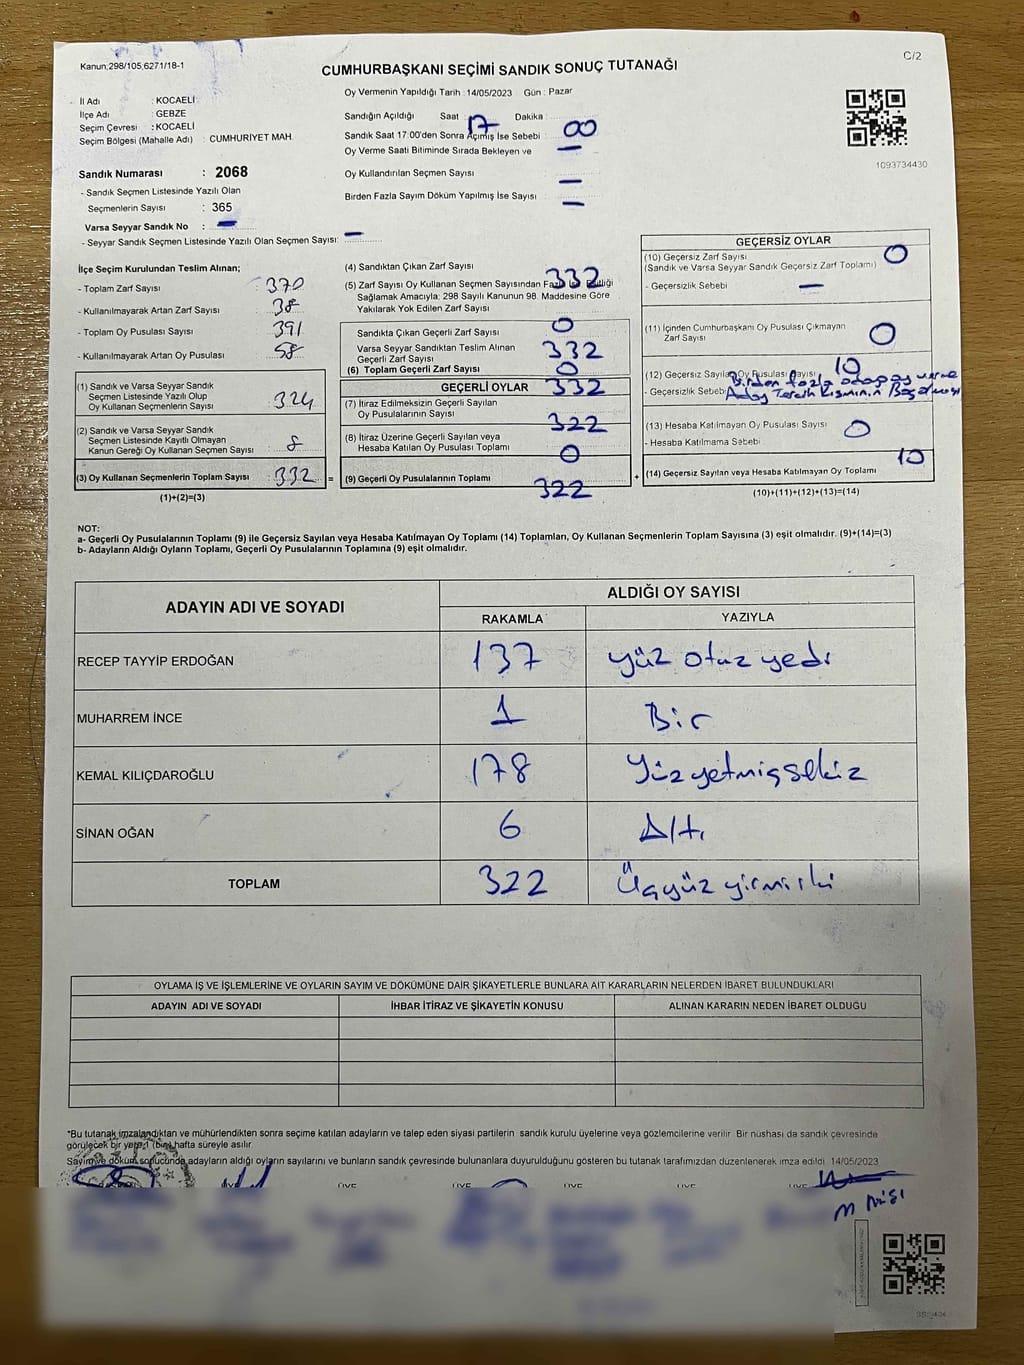 Kanun;298/105,6271/18-1
C/2
CUMHURBAŞKANI SEÇİMİ SANDIK SONUÇ TUTANAĞI
İl Adı : KOCAELİ
İlçe Adı : GEBZE
Seçim Çevresi : KOCAELİ
Seçim Bölgesi (Mahalle Adı) CUMHURİYET MAH.
Sandık Numarası : 2068
- Sandık Seçmen Listesinde Yazılı Olan
Seçmenlerin Sayısı : 365
Varsa Seyyar Sandık No : —
- Seyyar Sandık Seçmen Listesinde Yazılı Olan Seçmen Sayısı: —
Oy Vermenin Yapıldığı Tarih : 14/05/2023 Gün : Pazar
Sandığın Açıldığı Saat 17 Dakika 00
Sandık Saat 17:00'den Sonra Açımış İse Sebebi —
Oy Verme Saati Bitiminde Sırada Bekleyen ve
Oy Kullandırılan Seçmen Sayısı —
Birden Fazla Sayım Döküm Yapılmış İse Sayısı —
1093734430
İlçe Seçim Kurulundan Teslim Alınan;
- Toplam Zarf Sayısı : 370
- Kullanılmayarak Artan Zarf Sayısı : 38
- Toplam Oy Pusulası Sayısı : 391
- Kullanılmayarak Artan Oy Pusulası : 58
(1) Sandık ve Varsa Seyyar Sandık
Seçmen Listesinde Yazılı Olup
Oy Kullanan Seçmenlerin Sayısı : 324
(2) Sandık ve Varsa Seyyar Sandık
Seçmen Listesinde Kayıtlı Olmayan
Kanun Gereği Oy Kullanan Seçmen Sayısı : 8
(3) Oy Kullanan Seçmenlerin Toplam Sayısı : 332 =
(1)+(2)=(3)
(4) Sandıktan Çıkan Zarf Sayısı 332
(5) Zarf Sayısı Oy Kullanan Seçmen Sayısından Fazla İse Eşitliği
Sağlamak Amacıyla: 298 Sayılı Kanunun 98. Maddesine Göre
Yakılarak Yok Edilen Zarf Sayısı
0
Sandıkta Çıkan Geçerli Zarf Sayısı
Varsa Seyyar Sandıktan Teslim Alınan 332
Geçerli Zarf Sayısı
(6) Toplam Geçerli Zarf Sayısı 0
GEÇERLİ OYLAR 332
(7) İtiraz Edilmeksizin Geçerli Sayılan
Oy Pusulalarının Sayısı 322
(8) İtiraz Üzerine Geçerli Sayılan veya
Hesaba Katılan Oy Pusulası Toplamı 0
(9) Geçerli Oy Pusulalarının Toplamı 322 +
GEÇERSİZ OYLAR
(10) Geçersiz Zarf Sayısı 0
(Sandık ve Varsa Seyyar Sandık Geçersiz Zarf Toplamı)
- Geçersizlik Sebebi —
(11) İçinden Cumhurbaşkanı Oy Pusulası Çıkmayan
Zarf Sayısı 0
(12) Geçersiz Sayılan Oy Pusulası Sayısı 10
- Geçersizlik Sebebi Birden fazla adaya oy verme
Aday Tercih kısmının Boş olması
(13) Hesaba Katılmayan Oy Pusulası Sayısı 0
- Hesaba Katılmama Sebebi
(14) Geçersiz Sayılan veya Hesaba Katılmayan Oy Toplamı 10
(10)+(11)+(12)+(13)=(14)
NOT:
a- Geçerli Oy Pusulalarının Toplamı (9) ile Geçersiz Sayılan veya Hesaba Katılmayan Oy Toplamı (14) Toplamları, Oy Kullanan Seçmenlerin Toplam Sayısına (3) eşit olmalıdır. (9)+(14)=(3)
b- Adayların Aldığı Oyların Toplamı, Geçerli Oy Pusulalarının Toplamına (9) eşit olmalıdır.
ADAYIN ADI VE SOYADI ALDIĞI OY SAYISI
RAKAMLA YAZIYLA
RECEP TAYYİP ERDOĞAN 137 yüz otuz yedi
MUHARREM İNCE 1 Bir
KEMAL KILIÇDAROĞLU 178 Yüz yetmiş sekiz
SİNAN OĞAN 6 Altı
TOPLAM 322 Üçyüz yirmi iki
OYLAMA İŞ VE İŞLEMLERİNE VE OYLARIN SAYIM VE DÖKÜMÜNE DAİR ŞİKAYETLERLE BUNLARA AİT KARARLARIN NELERDEN İBARET BULUNDUKLARI
ADAYIN ADI VE SOYADI İHBAR İTİRAZ VE ŞİKAYETİN KONUSU ALINAN KARARIN NEDEN İBARET OLDUĞU
*Bu tutanak imzalandıktan ve mühürlendikten sonra seçime katılan adayların ve talep eden siyasi partilerin sandık kurulu üyelerine veya gözlemcilerine verilir. Bir nüshası da sandık çevresinde
görülecek bir yere 1 (bir) hafta süreyle asılır.
Sayım ve döküm sonucunda adayların aldığı oyların sayılarını ve bunların sandık çevresinde bulunanlara duyurulduğunu gösteren bu tutanak tarafımızdan düzenlenerek imza edildi. 14/05/2023
ÜYE ÜYE ÜYE ÜYE ÜYE